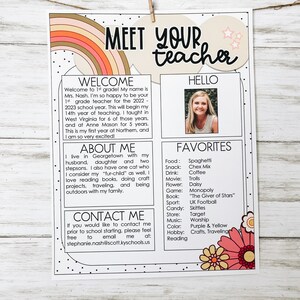 MEET YOUR
teacher
WELCOME
Welcome to 1st grade! My name is
Mrs. Nash. I'm so happy to be your
1st grade teacher for the 2022 -
2023 school year. This will be my
14th year of teaching. I taught in
West Virginia for 6 of those years,
and at Anne Mason for 5 years.
This is my first year at Northern, and
I am so very excited!
HELLO
ABOUT ME
I live in Georgetown with my
husband, daughter and two
stepsons. I also have one cat who
I consider my "fur-child" as well. I
love reading books, doing craft
projects, traveling, and being
outdoors with my family.
FAVORITES
Food: Spaghetti
Snack: Chex Mix
Drink: Coffee
Movie: Trolls
Flower: Daisy
Game: Monopoly
Book: "The Giver of Stars"
Sport: UK Football
Candy: Skittles
Store: Target
Music: Worship
Color: Purple & Yellow
Hobby: Crafts, Traveling,
Reading
CONTACT ME
If you would like to contact me
prior to school starting, please feel
free to email me at:
stephanie.nash@scott.kyschools.us